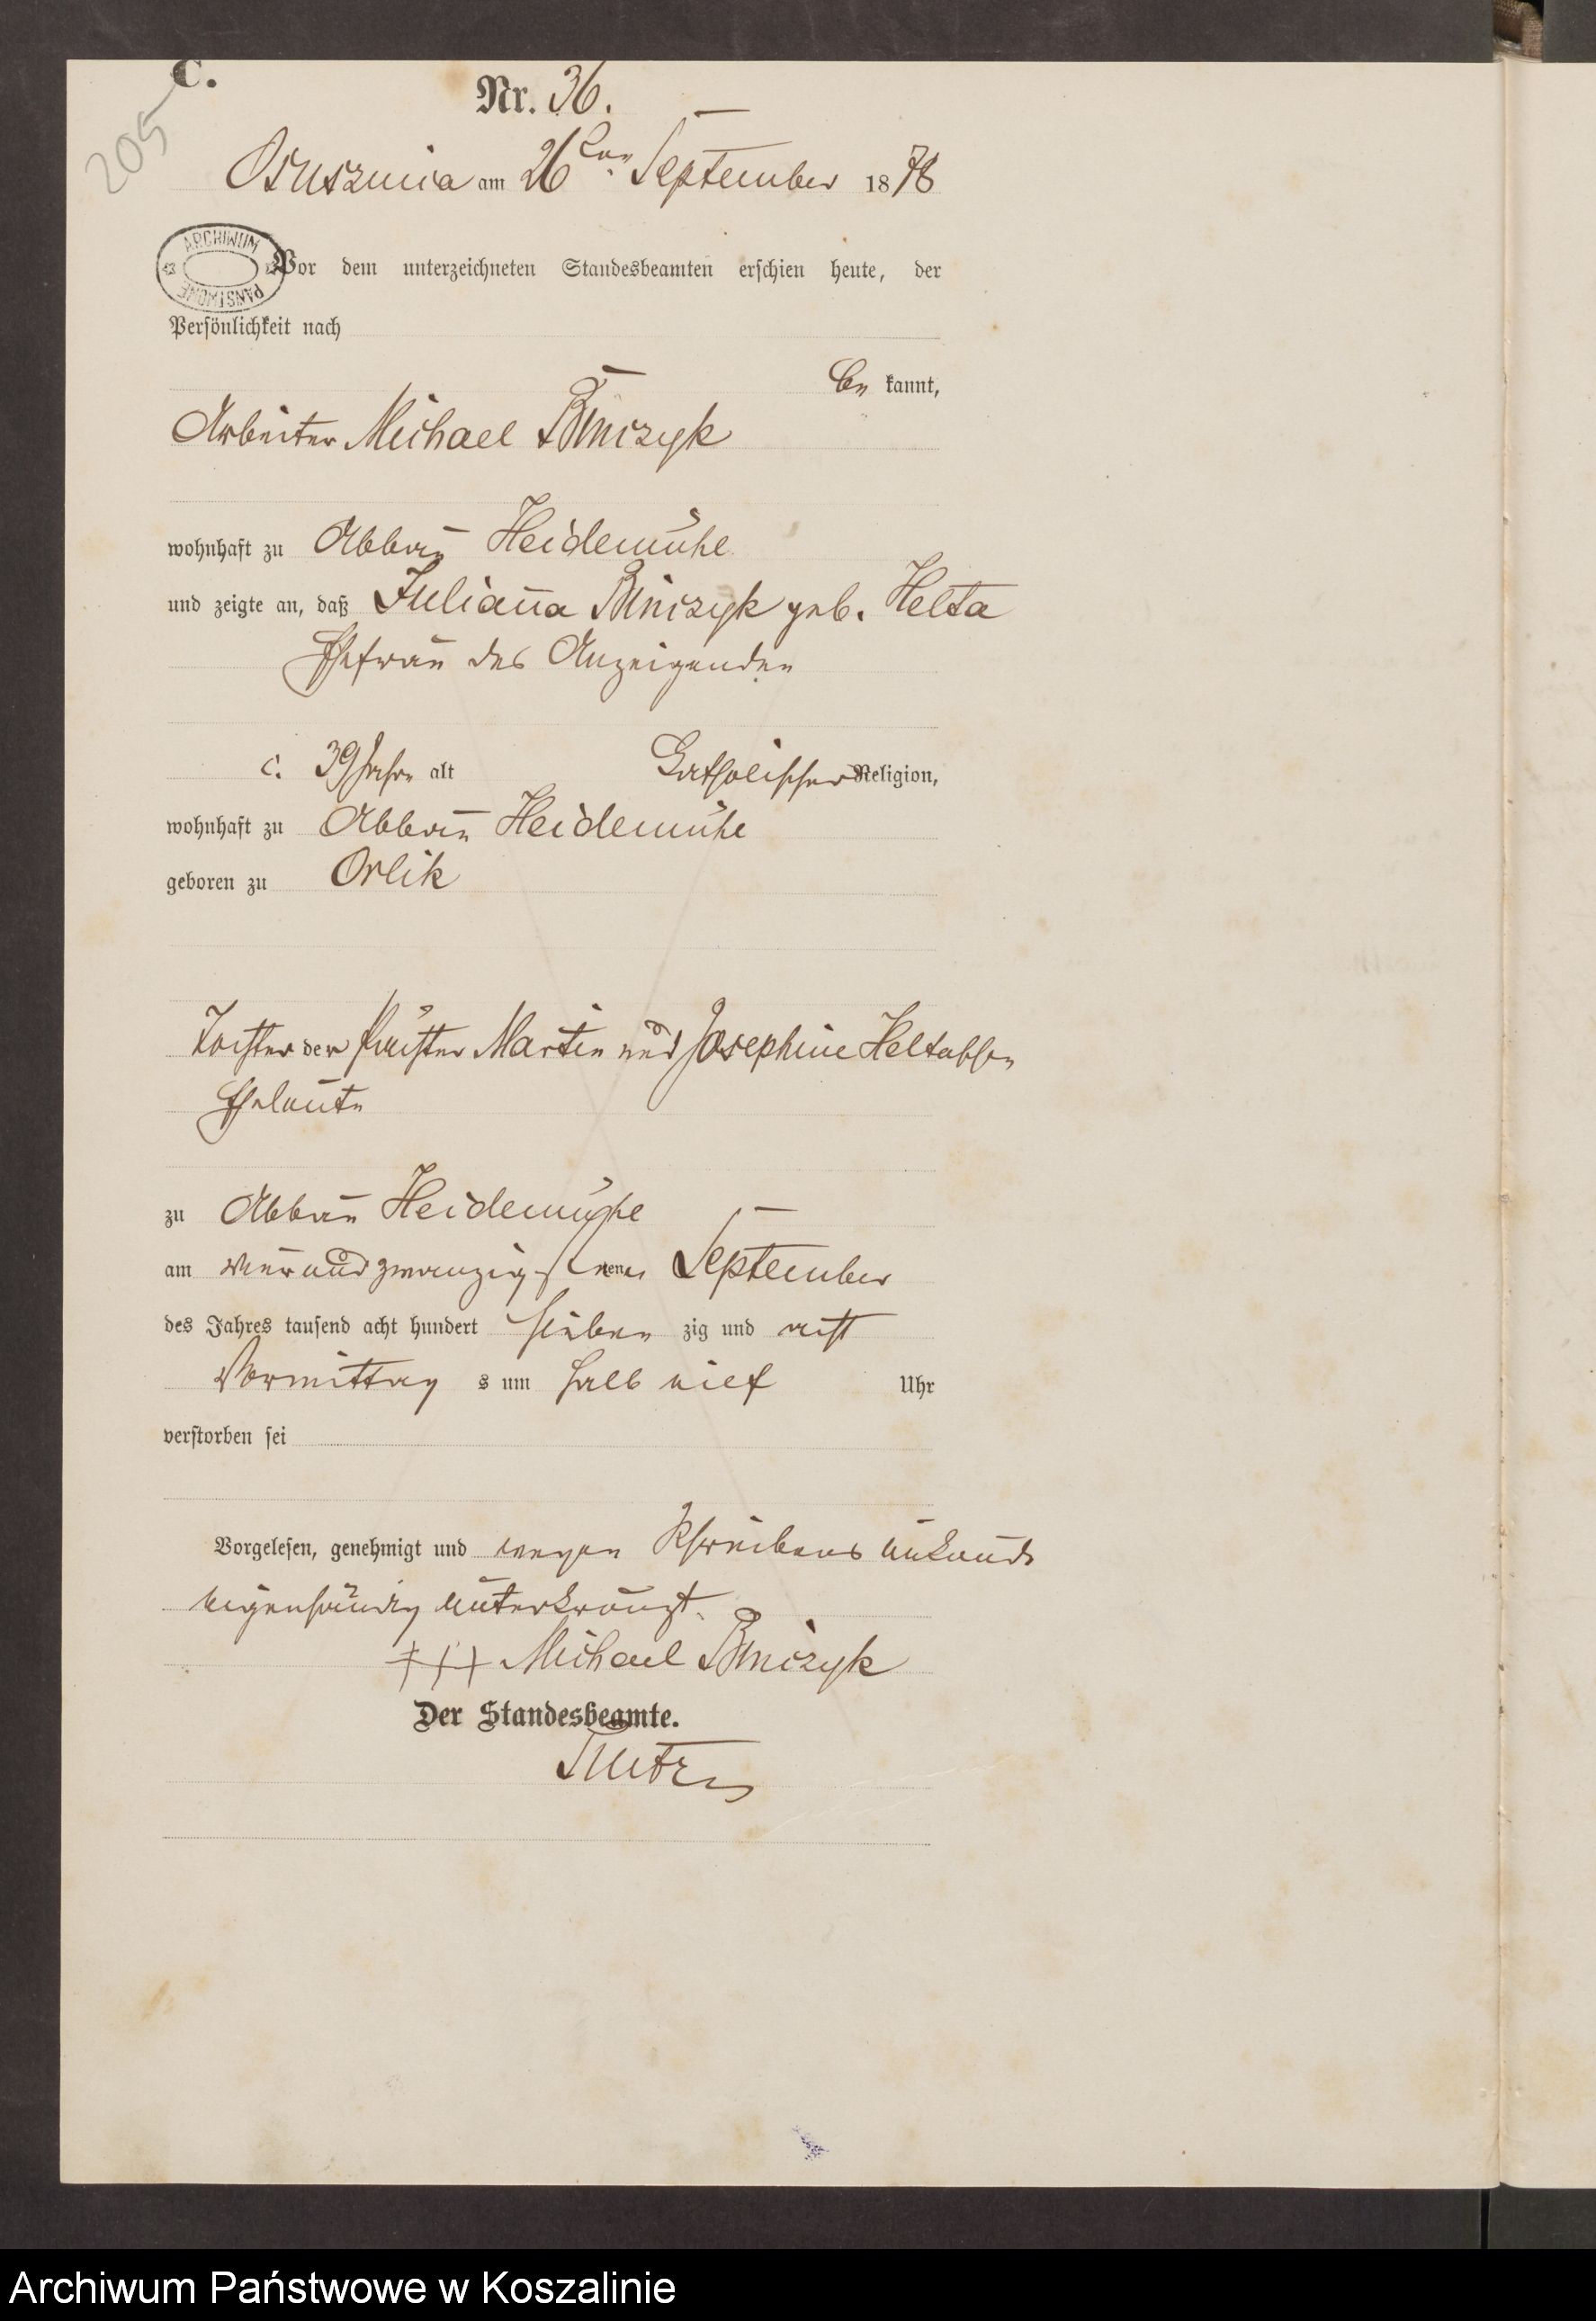 C.
205
Nr. 36.
Osusznica am 26ten September 1878
ARCHIWUM PAŃSTWOWE
Vor dem unterzeichneten Standesbeamten erschien heute, der
Persönlichkeit nach
be kannt,
Arbeiter Michael Binczyk
wohnhaft zu Abbau Heidemühe
und zeigte an, daß Julianna Binczyk geb. Helta
Ehefrau des Anzeigenden
c. 39 Jahre alt Catholischer Religion,
wohnhaft zu Abbau Heidemühe
geboren zu Orlik
Tochter der Martin und Josephine Heltabschen
Eheleute
zu Abbau Heidemühe
am vierundzwanzigsten September
des Jahres tausend acht hundert sieben zig und acht
Vormittag s um halb elf Uhr
verstorben sei
Vorgelesen, genehmigt und wegen Schreibens unkunde
eigenhändig unterkreuzt.
+++ Michael Binczyk
Der Standesbeamte.
Archiwum Państwowe w Koszalinie